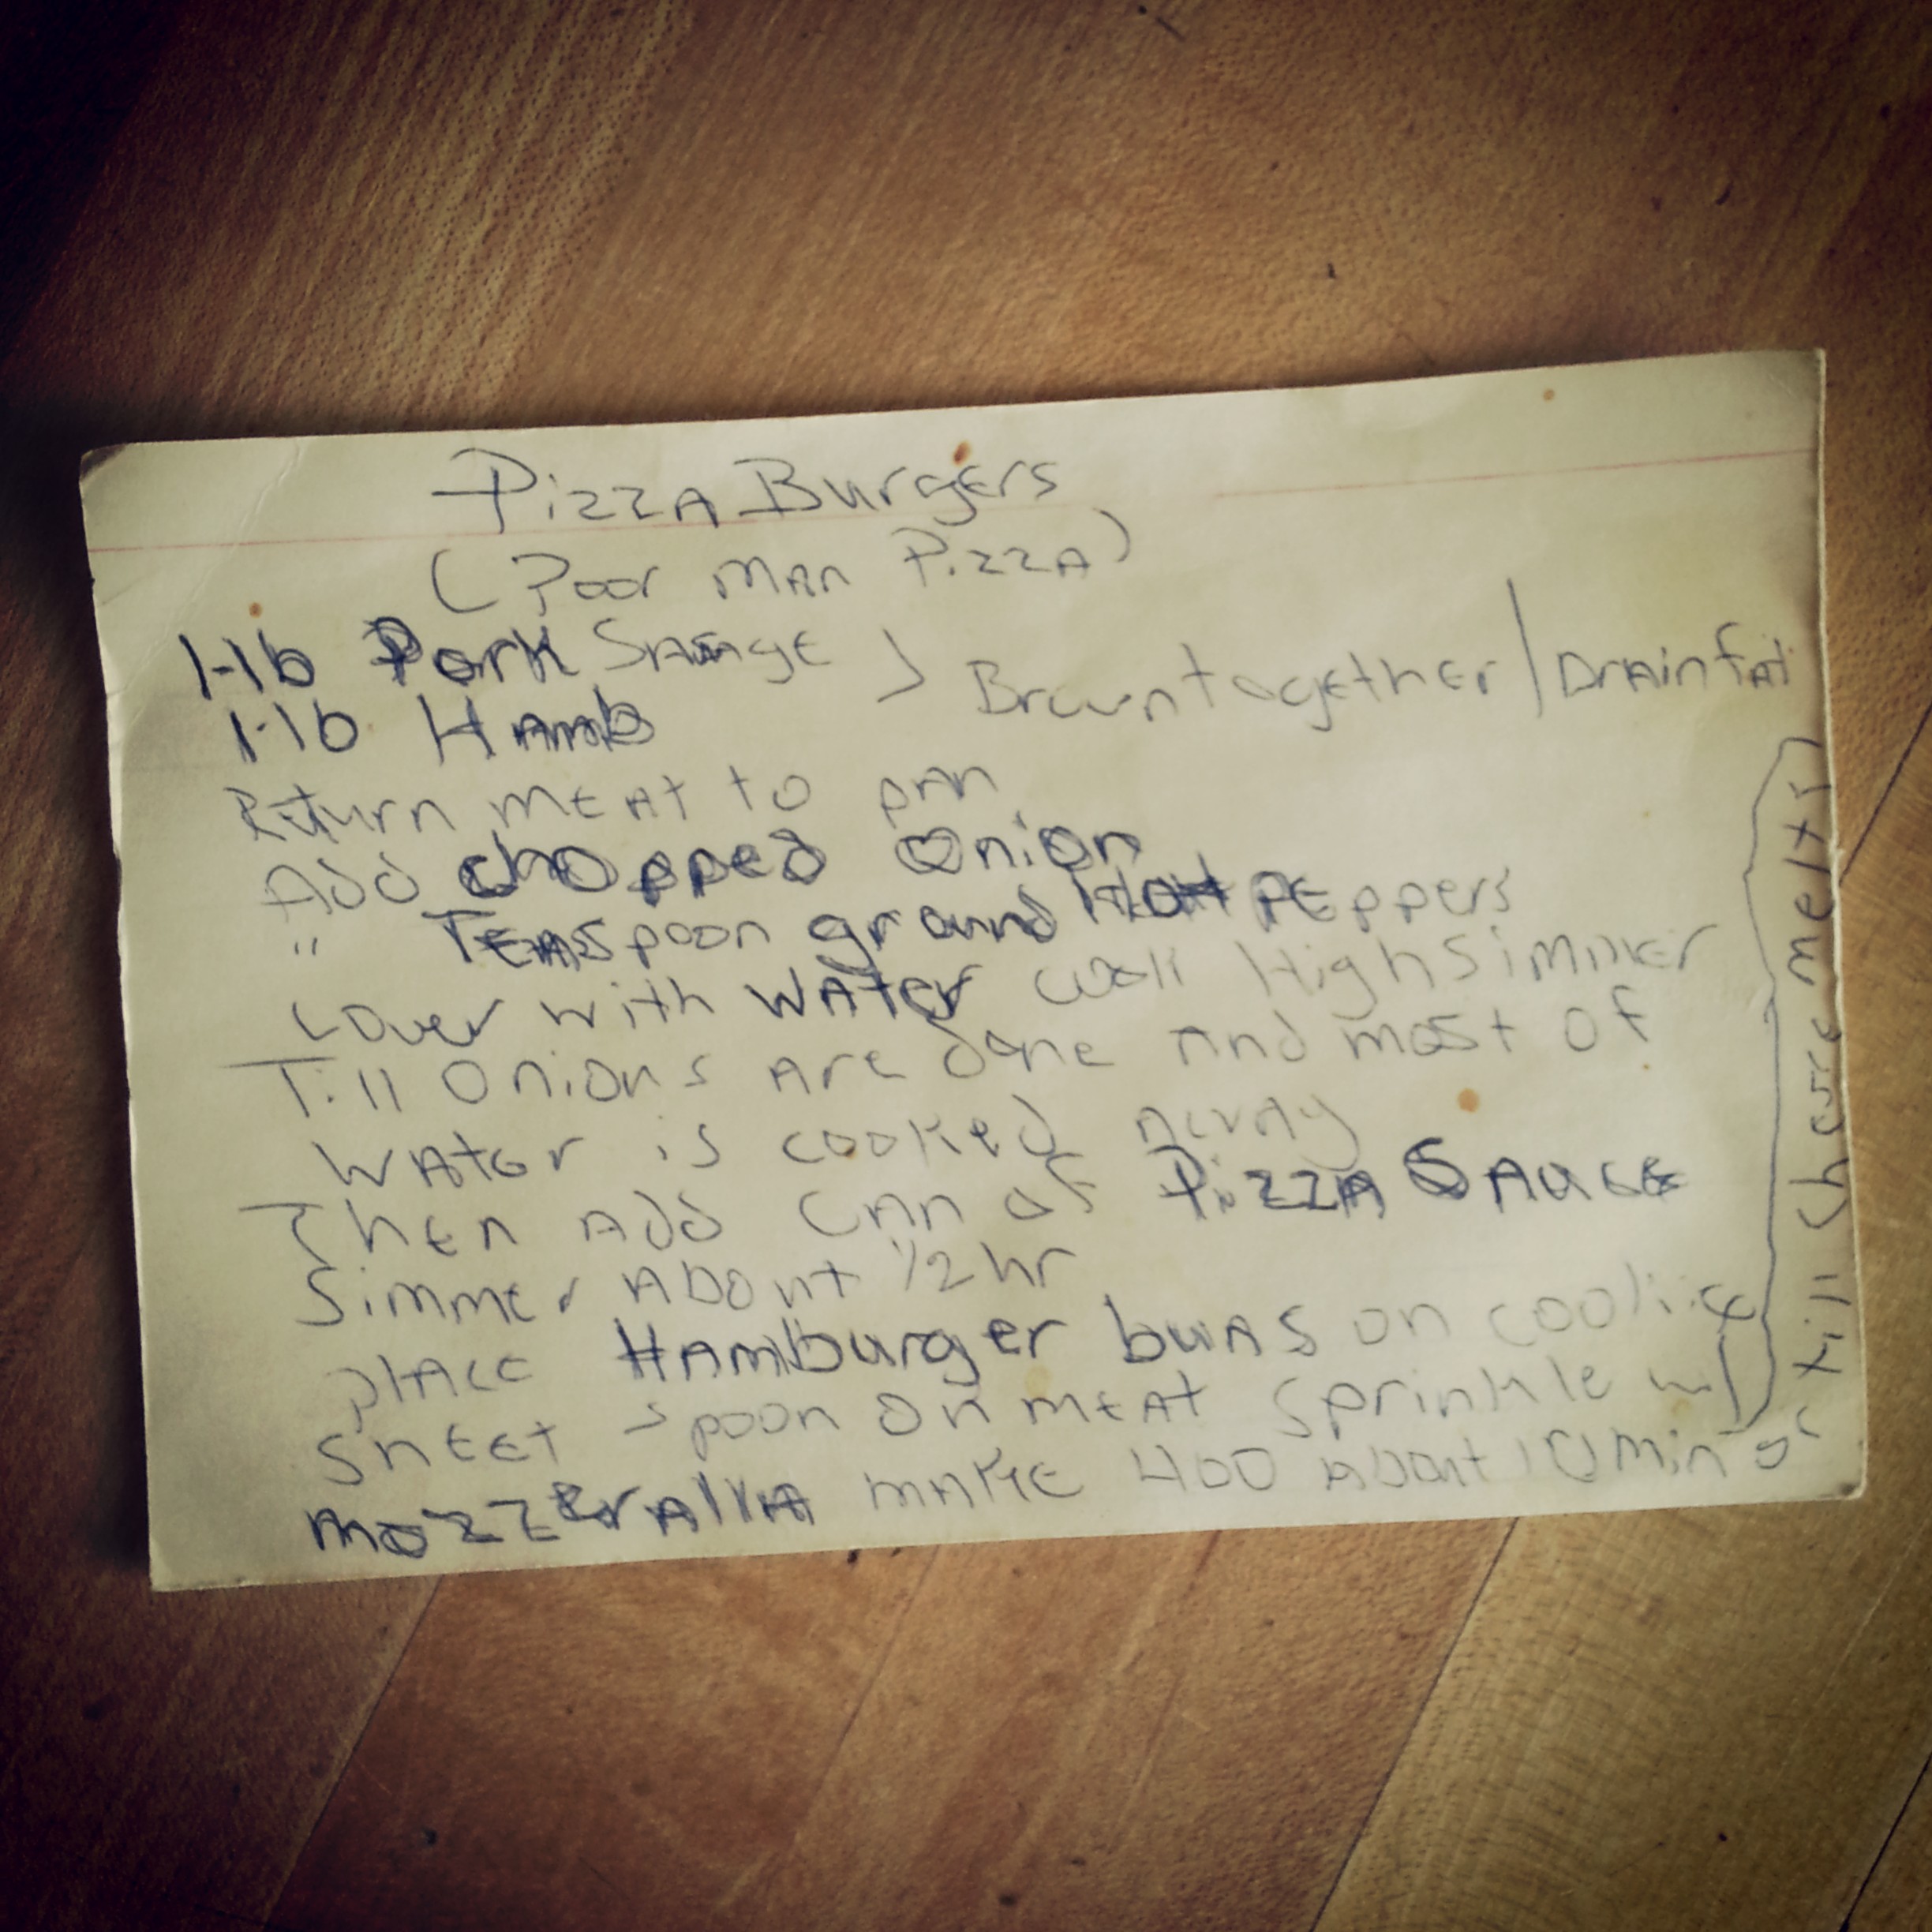 Pizza Burgers
(Poor Man Pizza)
1-lb Pork Sausage > Brown together / Drain fat
1-lb Hamb
Return meat to pan
Add chopped Onion
" Teaspoon ground Hot Peppers
Cover with water cook High Simmer
Till Onions are done and most of
water is cooked away
Then Add Can of Pizza Sauce
Simmer About 1/2 hr
place Hamburger buns on cookie
sheet spoon on meat sprinkle w/
mozzeralla make 400 about 10 min or
till cheese melts